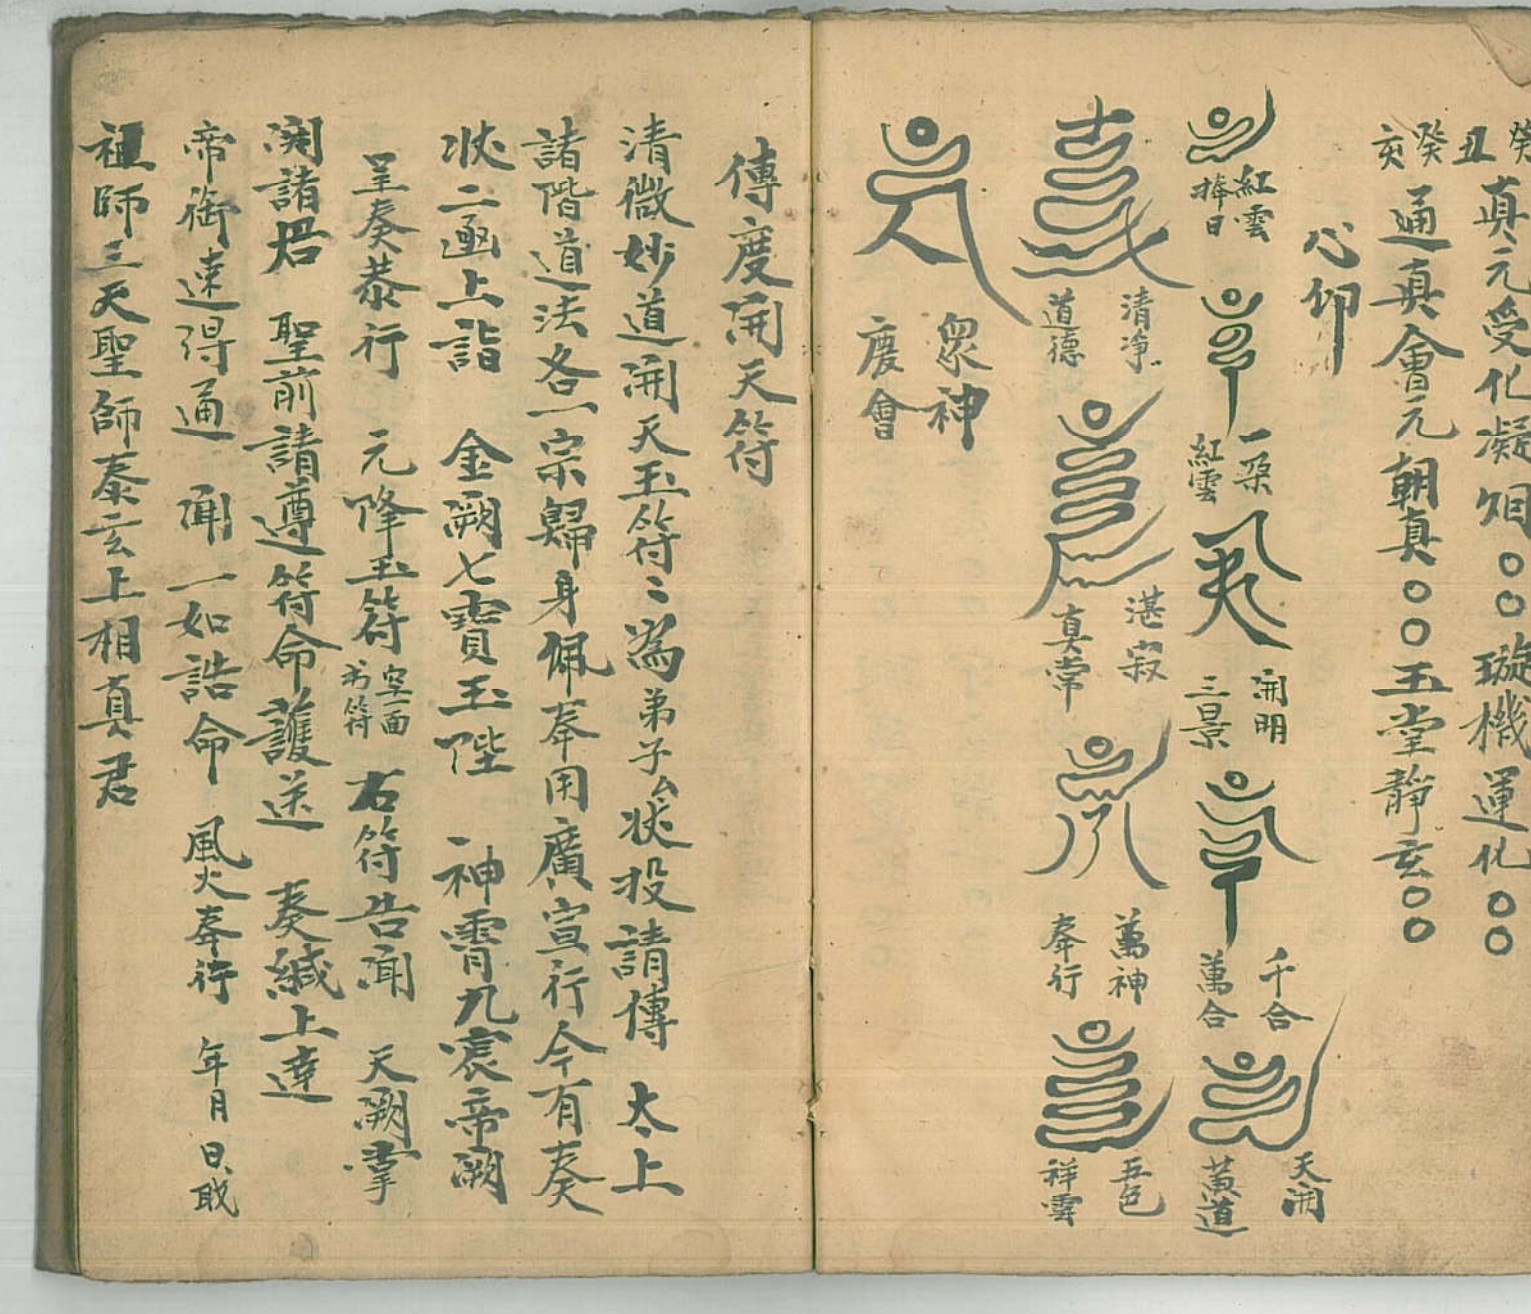 癸
丑
真元受化凝㸔〇〇璇機運化〇〇
癸
亥
通真會元朝真〇〇玉堂靜玄〇〇
心印
紅雲
捧日
一朵
紅雲
開明
三景
千合
萬合
天開
黃道
清淨
道德
湛寂
真常
萬神
奉行
五色
祥雲
眾神
慶會
傳度開天符
清微妙道開天玉符〻為弟子厶狀投請傳 太上
諸階道法各一宗歸身佩奉用廣宣行今有奏
狀二函上詣 金闕七寶玉陛 神霄九宸帝闕
呈奏恭行 元降玉符
空一面
書符
右符告聞 天闕掌
閱諸君 聖前請遵符命護送 奏緘上達
帝御速得通 聞一如誥命 風火奉行 年月日時
祖師三天聖師泰玄上相真君